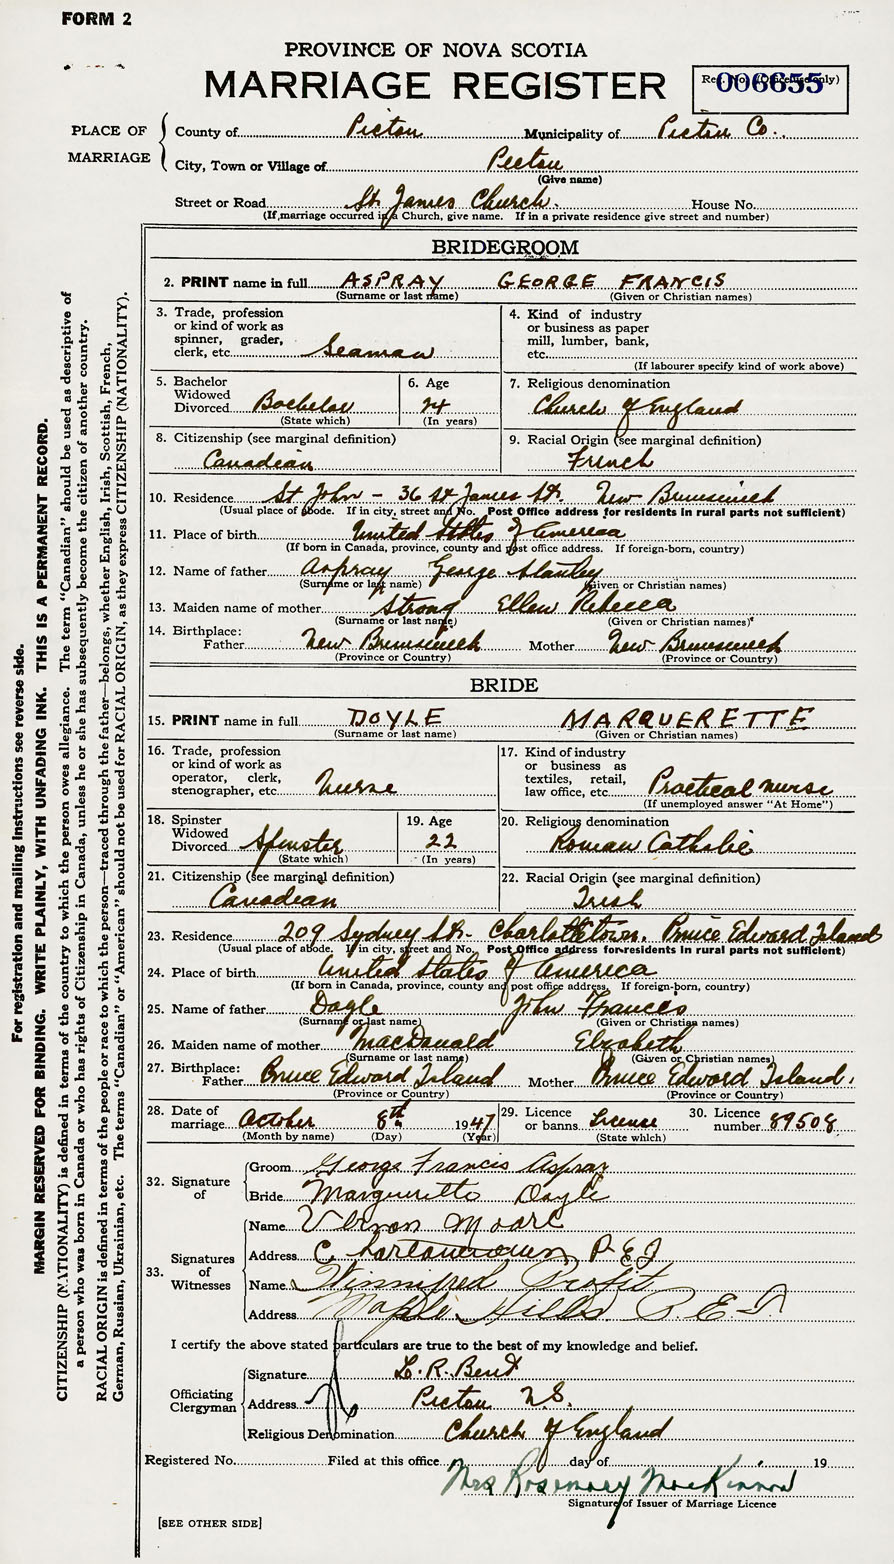 FORM 2
PROVINCE OF NOVA SCOTIA
MARRIAGE REGISTER
Reg. No. (Office use only)
006655
PLACE OF MARRIAGE
County of Pictou Municipality of Pictou Co.
City, Town or Village of Pictou
(Give name)
Street or Road St. James Church. House No.
(If marriage occurred in a Church, give name. If in a private residence give street and number)
BRIDEGROOM
2. PRINT name in full ASPRAY GEORGE FRANCIS
(Surname or last name) (Given or Christian names)
3. Trade, profession or kind of work as spinner, grader, clerk, etc. Seaman
4. Kind of industry or business as paper mill, lumber, bank, etc.
(If labourer specify kind of work above)
5. Bachelor Widowed Divorced Bachelor
(State which)
6. Age 24
(In years)
7. Religious denomination
Church of England
8. Citizenship (see marginal definition)
Canadian
9. Racial Origin (see marginal definition)
French
10. Residence St John - 36 St James St. New Brunswick
(Usual place of abode. If in city, street and No. Post Office address for residents in rural parts not sufficient)
11. Place of birth United States of America
(If born in Canada, province, county and post office address. If foreign-born, country)
12. Name of father Aspray George Stanley
(Surname or last name) (Given or Christian names)
13. Maiden name of mother Strong Ellen Rebecca
(Surname or last name) (Given or Christian names)
14. Birthplace: Father New Brunswick Mother New Brunswick
(Province or Country) (Province or Country)
BRIDE
15. PRINT name in full DOYLE MARQUERETTE
(Surname or last name) (Given or Christian names)
16. Trade, profession or kind of work as operator, clerk, stenographer, etc. Nurse
17. Kind of industry or business as textiles, retail, law office, etc. Practical nurse
(If unemployed answer "At Home")
18. Spinster Widowed Divorced Spinster
(State which)
19. Age 22
(In years)
20. Religious denomination
Roman Catholic
21. Citizenship (see marginal definition)
Canadian
22. Racial Origin (see marginal definition)
Irish
23. Residence 209 Sydney St. Charlottetown. Prince Edward Island
(Usual place of abode. If in city, street and No. Post Office address for residents in rural parts not sufficient)
24. Place of birth United States of America
(If born in Canada, province, county and post office address. If foreign-born, country)
25. Name of father Doyle John Francis
(Surname or last name) (Given or Christian names)
26. Maiden name of mother MacDonald Elizabeth
(Surname or last name) (Given or Christian names)
27. Birthplace: Father Prince Edward Island Mother Prince Edward Island.
(Province or Country) (Province or Country)
28. Date of marriage October 8th 1947
(Month by name) (Day) (Year)
29. Licence or banns License
(State which)
30. Licence number 89508
32. Signature of
Groom George Francis Aspray
Bride Marguerette Doyle
33. Signatures of Witnesses
Name Vernon Moore
Address Charlottetown P.E.I
Name Winnifred Profit
Address Maple Hills P.E.I.
I certify the above stated particulars are true to the best of my knowledge and belief.
Officiating Clergyman
Signature L. R. Bent
Address Pictou N.S.
Religious Denomination Church of England
Registered No. Filed at this office day of 19
Mrs Rosemary MacKinnon
Signature of Issuer of Marriage Licence
[SEE OTHER SIDE]
For registration and mailing instructions see reverse side.
MARGIN RESERVED FOR BINDING. WRITE PLAINLY, WITH UNFADING INK. THIS IS A PERMANENT RECORD.
CITIZENSHIP (NATIONALITY) is defined in terms of the country to which the person owes allegiance. The term "Canadian" should be used as descriptive of
a person who was born in Canada or who has rights of Citizenship in Canada, unless he or she has subsequently become the citizen of another country.
RACIAL ORIGIN is defined in terms of the people or race to which the person—traced through the father—belongs, whether English, Irish, Scottish, French,
German, Russian, Ukrainian, etc. The terms "Canadian" or "American" should not be used for RACIAL ORIGIN, as they express CITIZENSHIP (NATIONALITY).